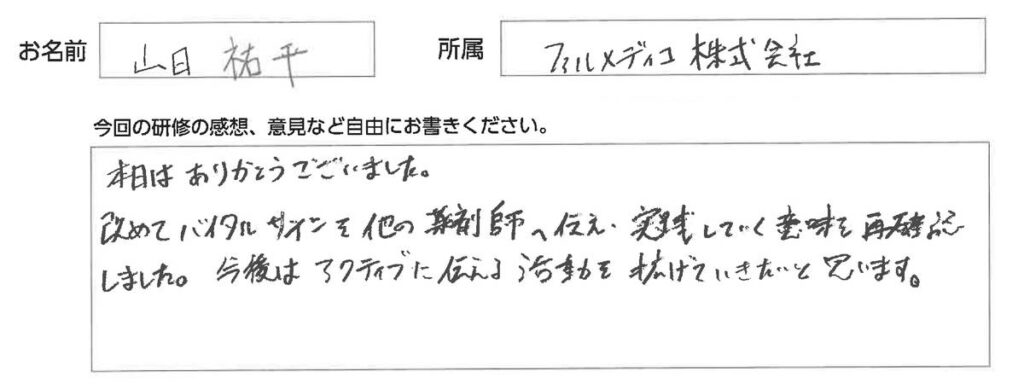 お名前 山日 祐平 所属 ファルメディコ 株式会社
今回の研修の感想、意見など自由にお書きください。
本日は ありがとうございました。
改めて バイタルサインを 他の 薬剤師へ伝え、実践していく意味を 再確認
しました。今後は アクティブに 伝える 活動を 拡げていきたいと 思います。